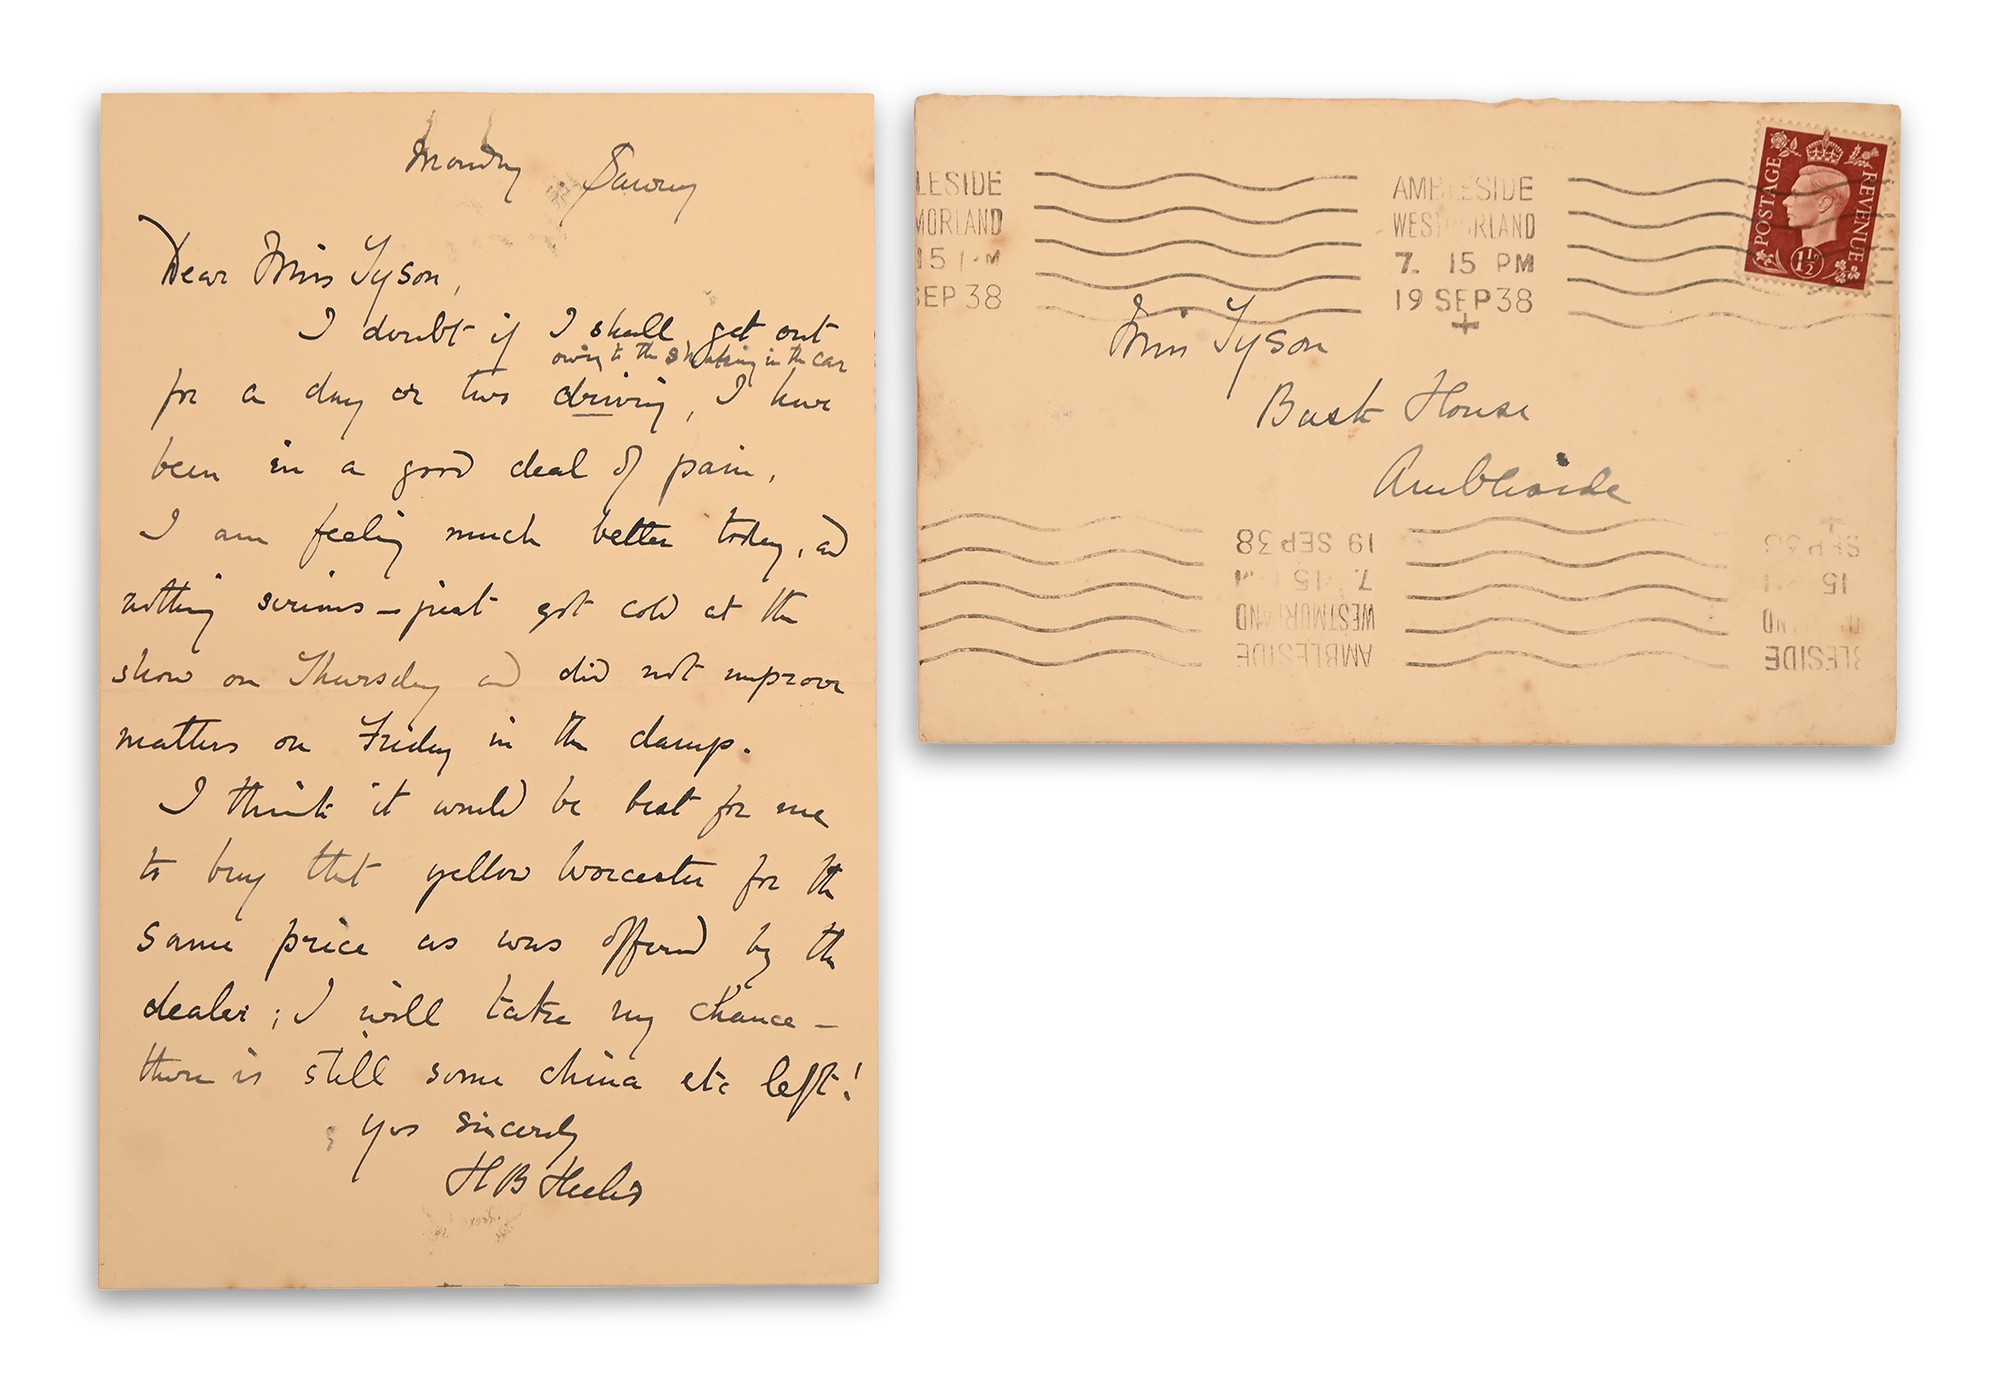 Monday Sawrey
Dear Miss Tyson,
I doubt if I shall get out
owing to the shaking in the car
for a day or two driving, I have
been in a good deal of pain,
I am feeling much better today, and
nothing serious – just got cold at the
show on Thursday and did not improve
matters on Friday in the damp.
I think it would be best for me
to buy that yellow Worcester for the
same price as was offered by the
dealer; I will take my chance –
there is still some china etc left!
yrs sincerely
H B Heelis
LESIDE
MORLAND
15 PM
SEP 38
AMBLESIDE
WESTMORLAND
7. 15 PM
19 SEP 38
POSTAGE REVENUE
1½
Miss Tyson
Busk House
Ambleside
19 SEP 38
7. 15
WESTMORLAND
AMBLESIDE
SEP 38
15
LESIDE